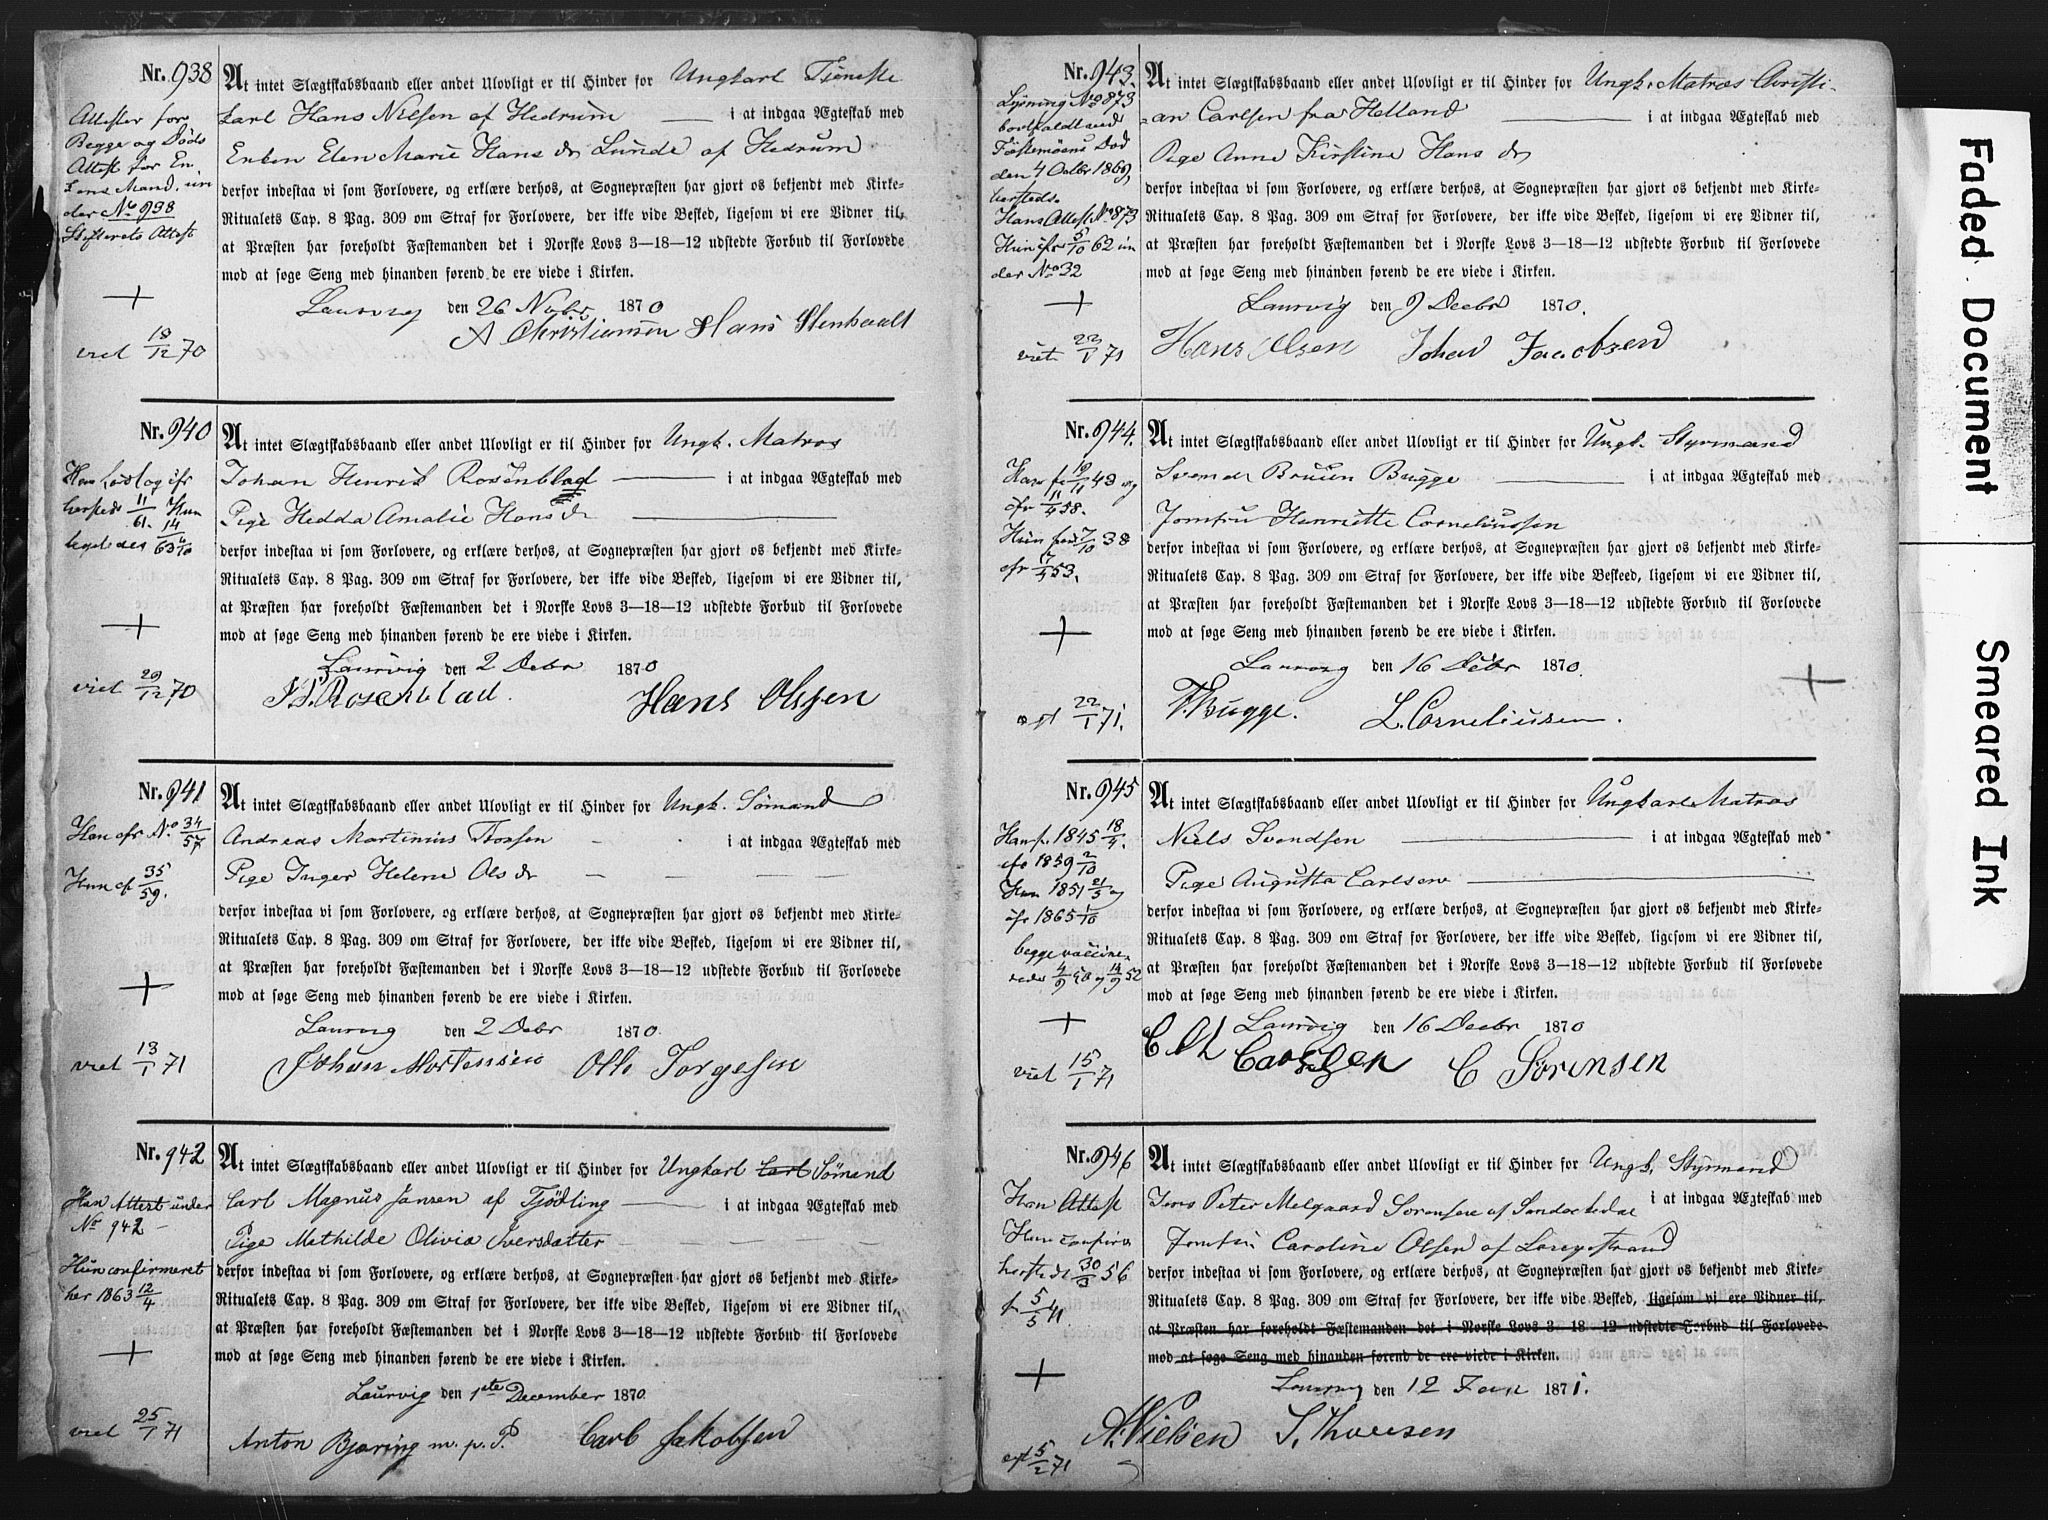 Nr. 938
At intet Slægtskabsbaand eller andet Ulovligt er til Hinder for Ungkarl Tjeneste
karl Hans Nilsen af Hedrum i at indgaa Ægteskab med
Enken Elen Marie Hansdr Lunde af Hedrum
derfor indestaa vi som Forlovere, og erklære derhos, at Sognepræsten har gjort os bekjendt med Kirke-
Ritualets Cap. 8 Pag. 309 om Straf for Forlovere, der ikke vide Besked, ligesom vi ere Vidner til,
at Præsten har foreholdt Fæstemanden det i Norske Lovs 3—18—12 udstedte Forbud til Forlovede
mod at søge Seng med hinanden førend de ere viede i Kirken.
Laurvig den 26 Novbr 1870
A Christiansen Hans Stenhaalt
Attester for
Begge og Døds
Attest for En
kens Mand, un
der No 938
Skifterets Attest
viet 18/12 70
Nr. 940
At intet Slægtskabsbaand eller andet Ulovligt er til Hinder for Ungk. Matros
Johan Henrik Rosenblad i at indgaa Ægteskab med
Pige Hedda Amalie Hansdr
derfor indestaa vi som Forlovere, og erklære derhos, at Sognepræsten har gjort os bekjendt med Kirke-
Ritualets Cap. 8 Pag. 309 om Straf for Forlovere, der ikke vide Besked, ligesom vi ere Vidner til,
at Præsten har foreholdt Fæstemanden det i Norske Lovs 3—18—12 udstedte Forbud til Forlovede
mod at søge Seng med hinanden førend de ere viede i Kirken.
Laurvig den 2 Debr 1870
Rosenblad. Hans Olssen
hersteds 11/61. Hun 14
ligeledes
viet 29/12 70
Nr. 941
At intet Slægtskabsbaand eller andet Ulovligt er til Hinder for Ungk. Sømand
Andreas Martinius Thossen i at indgaa Ægteskab med
Pige Inger Helene Olsdr
derfor indestaa vi som Forlovere, og erklære derhos, at Sognepræsten har gjort os bekjendt med Kirke-
Ritualets Cap. 8 Pag. 309 om Straf for Forlovere, der ikke vide Besked, ligesom vi ere Vidner til,
at Præsten har foreholdt Fæstemanden det i Norske Lovs 3—18—12 udstedte Forbud til Forlovede
mod at søge Seng med hinanden førend de ere viede i Kirken.
Laurvig den 2 Debr 1870.
Johan Mortensen Otto Torgesen
Han cfr No. 34/57
Hun cf 35/59.
viet 13/1 71
Nr. 942
At intet Slægtskabsbaand eller andet Ulovligt er til Hinder for Ungkarl Carl Sømand
Carl Magnus Jansen af Tjødling i at indgaa Ægteskab med
Pige Mathilde Olivia Iversdatter
derfor indestaa vi som Forlovere, og erklære derhos, at Sognepræsten har gjort os bekjendt med Kirke-
Ritualets Cap. 8 Pag. 309 om Straf for Forlovere, der ikke vide Besked, ligesom vi ere Vidner til,
at Præsten har foreholdt Fæstemanden det i Norske Lovs 3—18—12 udstedte Forbud til Forlovede
mod at søge Seng med hinanden førend de ere viede i Kirken.
Laurvig den 1ste December 1870
Anton Bjøring m. p. P. Carl Jakobsen
Han Attest under
No 942
Hun confirmeret
her 1863 12/4
viet 25/1 71
Nr. 943.
At intet Slægtskabsbaand eller andet Ulovligt er til Hinder for Ungk. Matros Christi-
an Carlsen fra Holland i at indgaa Ægteskab med
Pige Anne Kirstine Hansdr
derfor indestaa vi som Forlovere, og erklære derhos, at Sognepræsten har gjort os bekjendt med Kirke-
Ritualets Cap. 8 Pag. 309 om Straf for Forlovere, der ikke vide Besked, ligesom vi ere Vidner til,
at Præsten har foreholdt Fæstemanden det i Norske Lovs 3—18—12 udstedte Forbud til Forlovede
mod at søge Seng med hinanden førend de ere viede i Kirken.
Laurvig den 9 Decbr 1870.
Hans Olsen Johan Jacobsen
Lysning No 873
bortfaldt ved
Fæstemøens Død
den 4 Octbr 1869,
hersteds.
Hans Attest No 873
Hun cfr 5/10 62 un
der No 32
viet 22/1 71
Nr. 944.
At intet Slægtskabsbaand eller andet Ulovligt er til Hinder for Ungk. Styrmand
Bruun Bugge i at indgaa Ægteskab med
Jomfru Henriette Corneliussen
derfor indestaa vi som Forlovere, og erklære derhos, at Sognepræsten har gjort os bekjendt med Kirke-
Ritualets Cap. 8 Pag. 309 om Straf for Forlovere, der ikke vide Beskeed, ligesom vi ere Vidner til,
at Præsten har foreholdt Fæstemanden det i Norske Lovs 3—18—12 udstedte Forbud til Forlovede
mod at søge Seng med hinanden førend de ere viede i Kirken.
Laurvig den 16 Debr 1870.
Bugge. L. Corneliussen.
Han fø 19/11 43 og
cfr 11/4 58.
Hun født 7/10 38
cfr 17/4 53.
22/1 71.
Nr. 945
At intet Slægtskabsbaand eller andet Ulovligt er til Hinder for Ungkarl Matros
Niels Svendsen i at indgaa Ægteskab med
Pige Augusta Carlsen
derfor indestaa vi som Forlovere, og erklære derhos, at Sognepræsten har gjort os bekjendt med Kirke-
Ritualets Cap. 8 Pag. 309 om Straf for Forlovere, der ikke vide Besked, ligesom vi ere Vidner til,
at Præsten har foreholdt Fæstemanden det i Norske Lovs 3—18—12 udstedte Forbud til Forlovede
mod at søge Seng med hinanden førend de ere viede i Kirken.
Laurvig den 16 Decbr 1870
Carlsen C Sørensen
Han f. 1845 18/4.
cfr 1859 2/10
Hun 1851 21/5 og
cfr 1865 1/10
begge vaccine-
rede 4/9 50 og 14/9 52
viet 15/1 71
Nr. 946
At intet Slægtskabsbaand eller andet Ulovligt er til Hinder for Ungk. Styrmand
Jens Peter Melgaard Sørensen af Sandokedal i at indgaa Ægteskab med
Jomfru Caroline Olsen af Langestrand
derfor indestaa vi som Forlovere, og erklære derhos, at Sognepræsten har gjort os bekjendt med Kirke-
Ritualets Cap. 8 Pag. 309 om Straf for Forlovere, der ikke vide Besked, ligesom vi ere Vidner til,
at Præsten har foreholdt Fæstemanden det i Norske Lovs 3—18—12 udstedte Forbud til Forlovede
mod at søge Seng med hinanden førend de ere viede i Kirken.
Laurvig den 12 Jan 1871.
A. Nielsen S. Thoresen
Han Attest
Hun confirm
hersteds 30/3 56
f. 5/5 41.
5/2 71
Faded Document
Smeared Ink